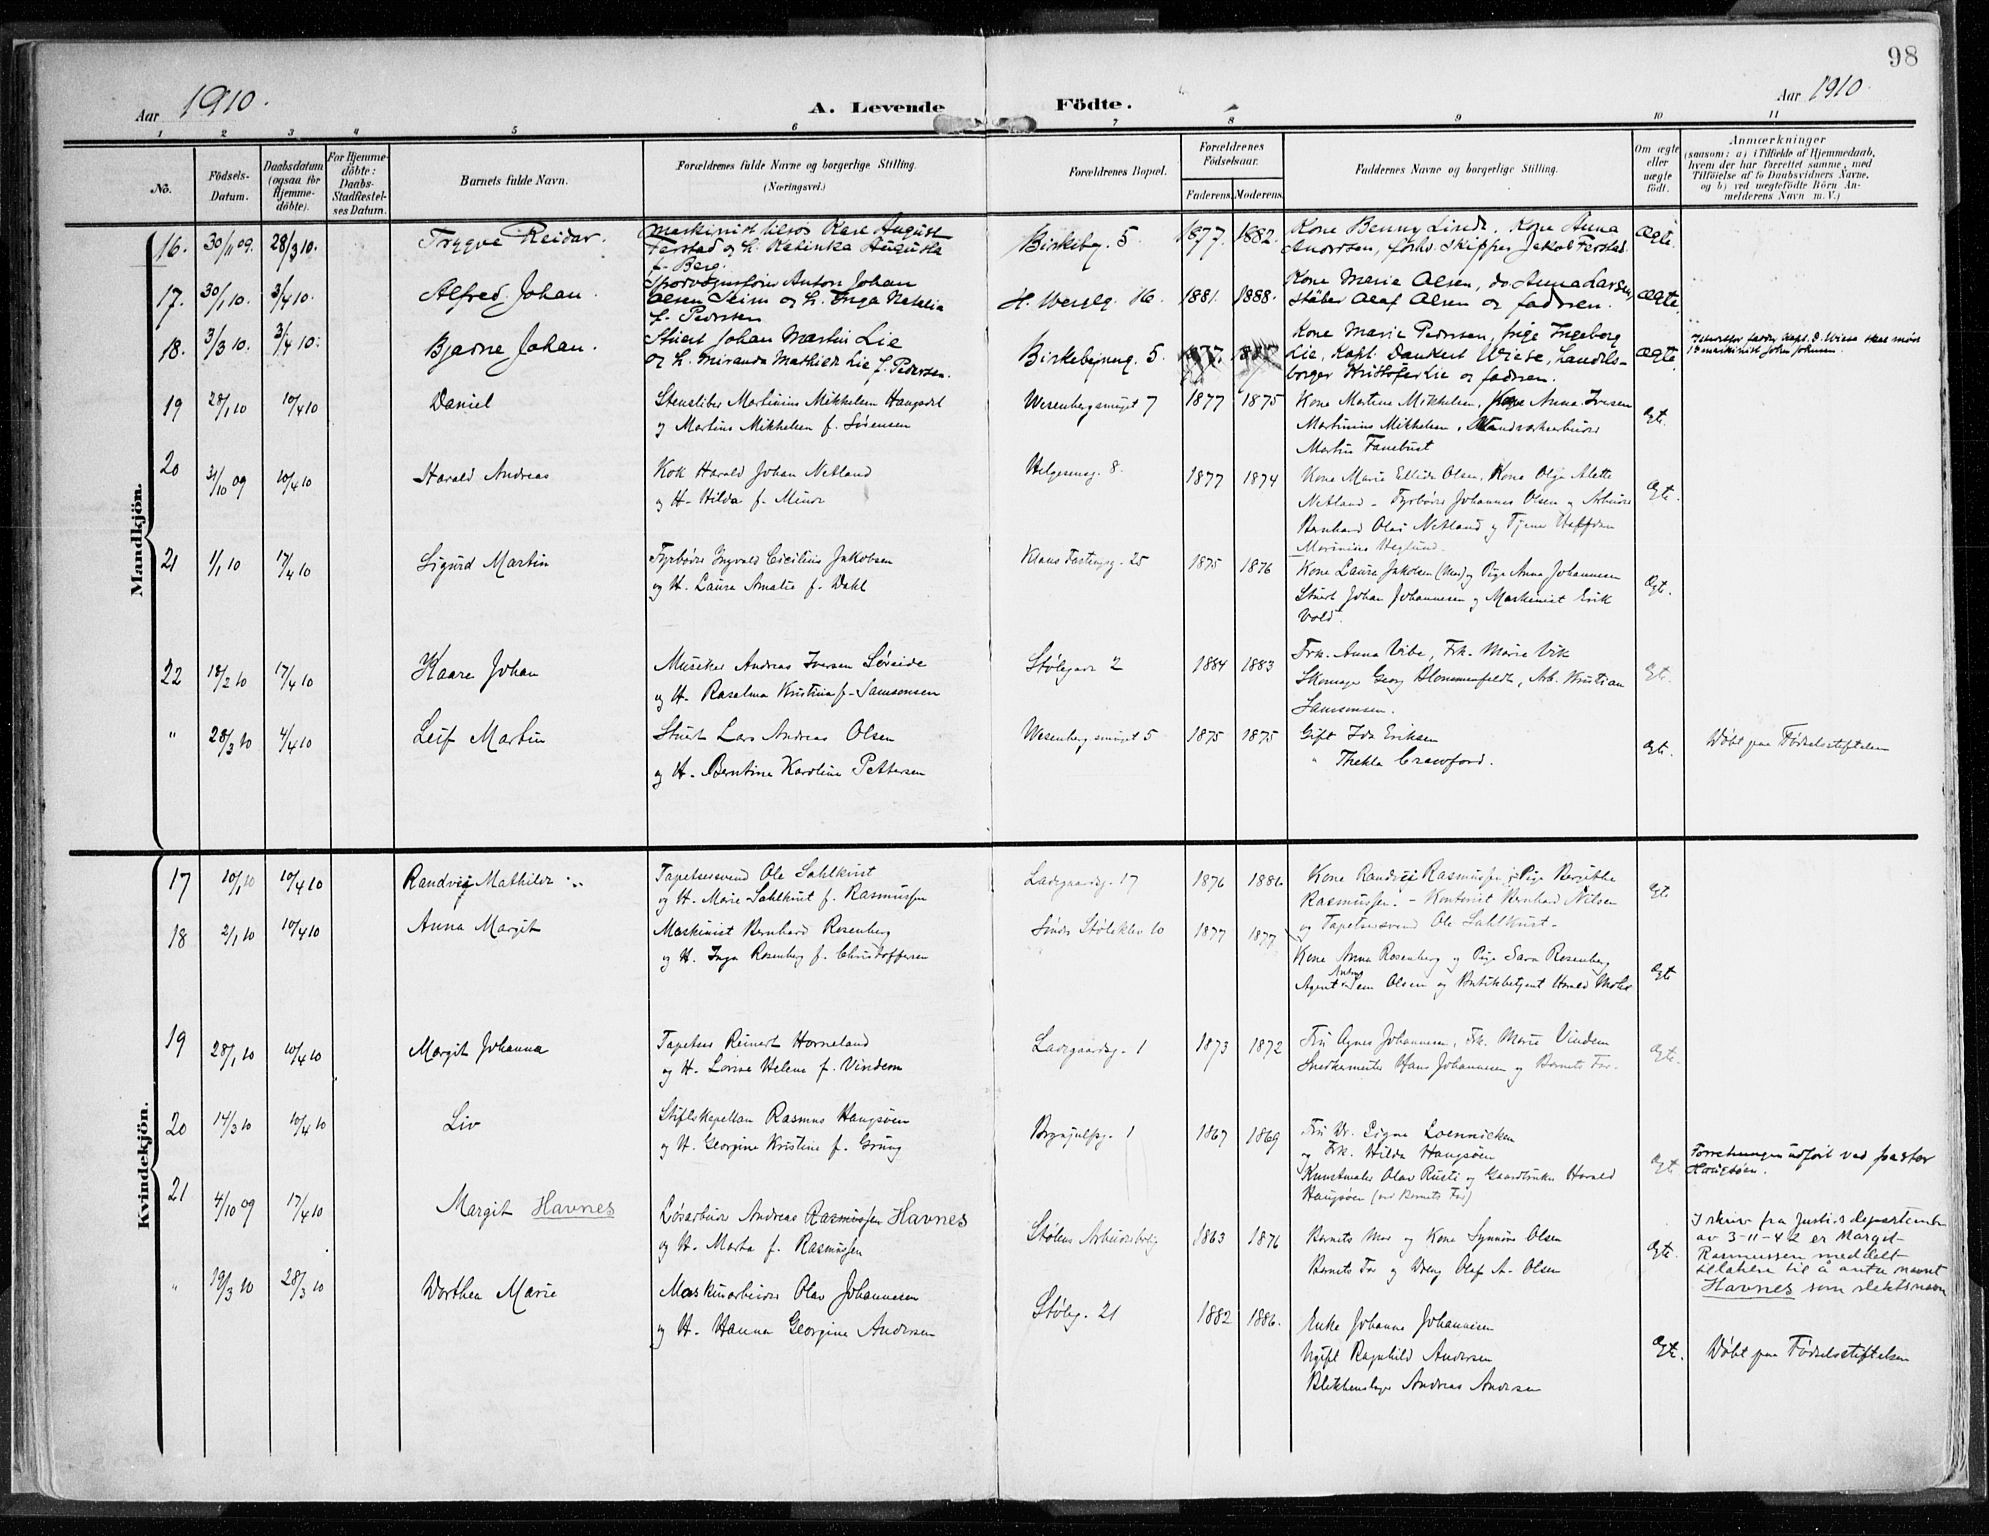 98
Aar 1910.
A. Levende Födte.
Aar 1910.
1 2 3 4 5 6 7 8 9 10 11
No.
Födsels-
Datum.
Daabsdatum
(ogsaa för
Hjemme-
döbte).
For Hjemme-
döbte:
Daabs-
Stadfæstel-
ses Datum.
Barnets fulde Navn.
Forældrenes fulde Navne og borgerlige Stilling.
(Næringsvei.)
Forældrenes Bopæl.
Forældrenes
Födselsaar.
Faderens.
Moderens.
Faddernes Navne og borgerlige Stilling.
Om ægte
eller
uægte
födt.
Anmærkninger
(saasom: a) i Tilfælde af Hjemmedaab,
hvem der har forrettet samme, med
Tilföielse af to Daabsvidners Navne.
og b) ved uægtefödte Börn An-
melderens Navn m. V.)
Mandkjön.
16. 30/11 09. 28/3 10. Trygve Reidar.
Maskinist Karl August
Ferstad og H. Katinka Augusta
f. Berg.
Birkebeg. 5. 1877. 1882.
Kone Benny Linde. Kone Anna
Andersen, forhv. Skipper Jakob Ferstad.
Ægte.
17. 30/1 10. 3/4 10. Alfred Johan.
Sporvognsfører Anton Johan
Olsen Seim og H. Inga Natalia
f. Pedersen
H. Weselg. 16. 1881. 1888.
Kone Marie Olsen, do. Anna Larsen,
Støber Olaf Olsen og faderen.
Ægte.
18. 3/3 10. 3/4 10. Bjarne Johan.
Stuert Johan Martin Lie
og H. Miranda Mathilde Lie f. Pedersen.
Birkebeinerg. 5
Kone Marie Pedersen, pige Ingeborg
Lie, Kapt. Dankert Wiese, Handels-
borger Kristofer Lie og faderen.
Ægte.
Istedetfor fadder kapt. D. Wiese skal møde
1ste maskinist John Johnsen.
19 28/1 10 10/4 10 Daniel
Stensliber Martinius Mikkelsen Haugsdal
og Martine Mikkelsen f. Sørensen
Wesenbergsmuget 7 1877 1875
Kone Martine Mikkelsen, Pige Anna Iversen
Martinius Mikkelsen, Haandværkerbud
Martin Fanebust
Ægte.
20 31/10 09 10/4 10 Harald Andreas
Kok Harald Johan Netland
og H. Hilda f. Minor
Helgesensg. 8. 1877 1874
Kone Marie Ellida Olsen, Kone Olga Alette
Netland - Fyrbøder Johannes Olsen og Arbeider
Bernhard Olai Netland og Tjener Haffdan
Marinius Heglund.
Ægte.
21 1/1 10 17/4 10 Sigurd Martin
Fyrbøder Ingvald Cicilius Jakobsen
og H. Laura Amalie f. Dahl
Klaus Fastingsg. 25 1875 1876
Kone Laura Jakobsen (Mor) og Pige Anna Johannesen
Stuert Johan Johannesen og Maskinist Erik
Vold.
Ægte.
22 18/2 10 17/4 10 Kaare Johan
Musiker Andreas Iversen Søreide
og H. Raselma Kristina f. Samsonsen
Stølegade 2 1884 1883
Frk. Anna Vibe, Frk. Marie Vik
Skomager Georg Blommenfeldt, Arb. Kristian
Samsonsen.
Ægte.
" 28/3 10 4/4 10 Leif Martin
Stuert Lars Andreas Olsen
og H. Berntina Karoline Pettersen
Wesenbergsmuget 5 1875 1875
Gift Ida Eriksen
" Thekla Crawford.
Ægte.
Døbt paa Fødselsstiftelsen
Kvindekjön.
17 10/1 10 10/4 10 Randvig Mathilde
Tapetsersvend Ole Sahlkvist
og H. Marie Sahlkvist f. Rasmussen
Ladegaardsg. 17 1876 1886
Kone Randvei Rasmussen, Pige Bergitte
Rasmussen. - Kontorist Bernhard Nilsen
og Tapetsersvend Ole Sahlkvist -
Ægte
18 2/1 10 10/4 10 Anna Margit
Maskinist Bernhard Rosenberg
og H. Inga Rosenberg f. Christoffersen
Søndre Stølekleven 10 1877 1877
Kone Anna Rosenberg og Pige Sara Rosenberg
Agent Olsen og Butikbetjent Harald Mohr
Ægte
19 28/1 10 10/4 10 Margit Johanna
Tapetser Reinert Horneland
og H. Lovise Helene f. Vindem
Ladegaardsg. 1 1873 1872
Fru Agnes Johannesen, Frk. Marie Vindem
Snedkermester Hans Johannesen og Barnets Far.
Ægte.
20 14/3 10 10/4 10 Liv
Stiftskapellan Rasmus Haugsøen
og H. Georgine Kristine f. Grung
Brynjulfsg. 1 1867 1869
Fru Dr. Signe Loennicken
og Frk. Hilda Haugsøen
Kunstmaler Olav Rusti og Gaardbruker Harald
Haugsøen (ved Barnets Far)
Ægte
Forretningen udført ved pastor
Haugsøen.
21 4/10 09 17/4 10 Margit Havnes
Løsarbeider Andreas Rasmussen Havnes
og H. Marta f. Rasmussen
Stølens Arbeiderbolig 1863 1876
Barnets Mor og Kone Synnøve Olsen
Barnets Far og Dreng Olaf A. Olsen
Ægte.
I skriv fra Justisdepartementet
av 3-11-42 er Margit
Rasmussen meddelt
tillatelse til å anta navnet
Havnes som slektsnavn
" 19/3 10 28/3 10 Dorthea Marie
Maskinarbeider Olav Johannesen
og H. Hanna Georgine Andersen
Stølg. 21 1882 1886.
Enke Johanne Johannesen
Ugift Ragnhild Andersen
Blikkenslager Andreas Andersen
Ægte.
Døbt paa Fødselsstiftelsen